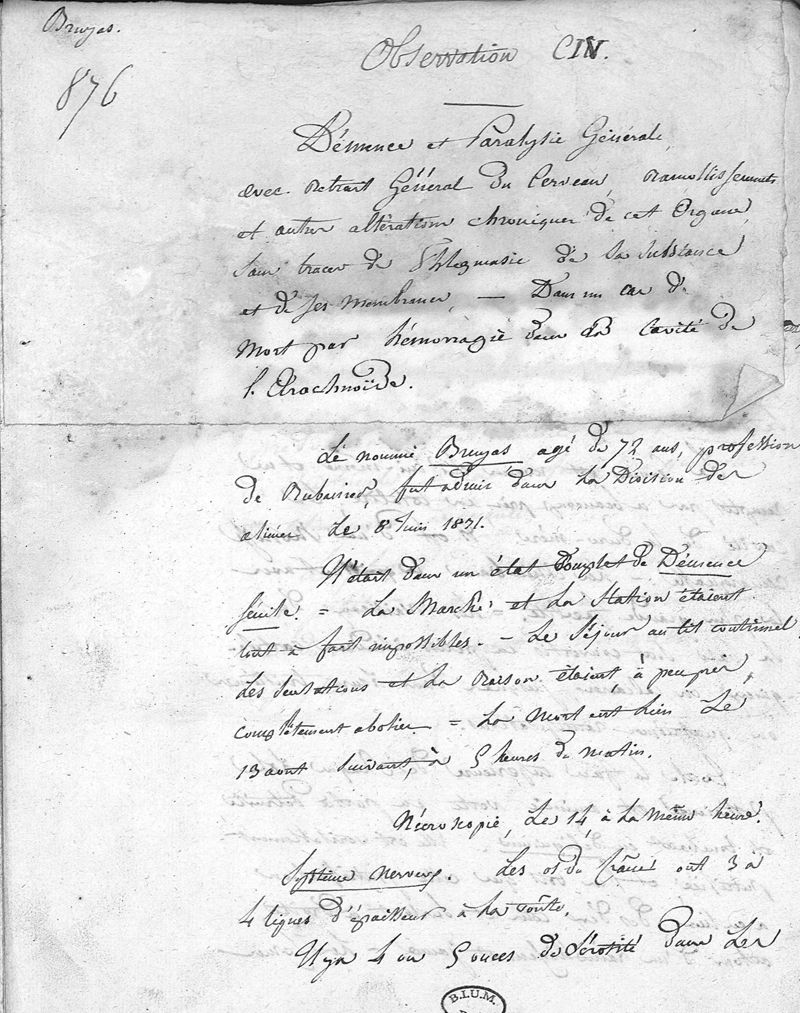 Bruyas.
876
Observation CIV.
Démence et Paralysie Générale,
avec Retrait Général du Cerveau, Ramollissements
et autres altérations chroniques de cet Organe,
sans traces de Phlegmasie de la Substance
et de ses Membranes, — Dans un cas de
Mort par hémorragie dans la Cavité de
l'Arachnoïde.
Le nommé Bruyas agé de 72 ans, profession
de Rubanier, fut admis dans la Division des
aliénés Le 8 Juin 1821.
Il était dans un état complet de Démence
sénile. = La Marche et La Station étaient
tout à fait impossibles. – Le Séjour au lit continuel,
Les Sensations et La Raison étaient à peu près
complètement abolies. = La Mort eut Lieu Le
13 aout Suivant, à 5 heures du matin.
Nécroscopie, Le 14 à La même heure.
Système nerveux. Les os du Crâne ont 3 à
4 lignes d'épaisseur à La voûte.
Il y a 4 ou 5 onces de Sérosité dans Les
B.I.U.M.